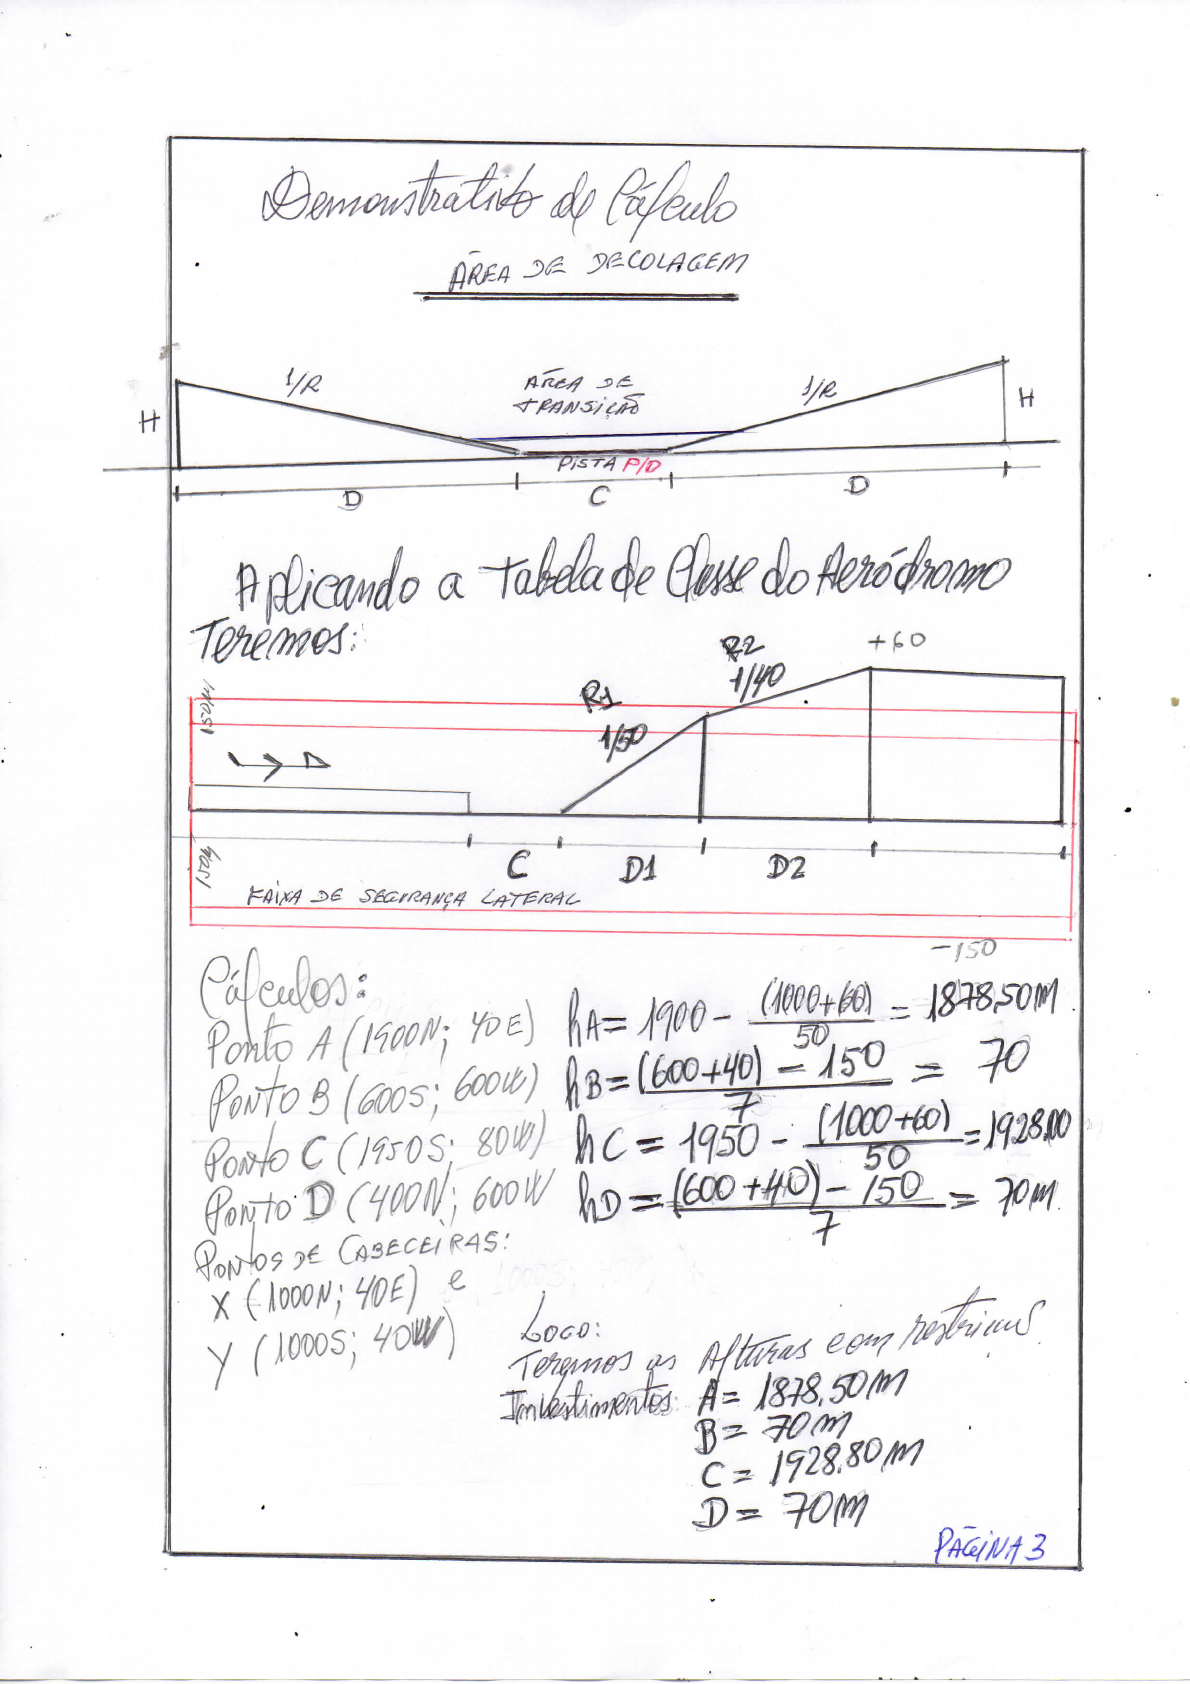 Demonstrativo de Cálculo
ÁREA DE DECOLAGEM
1/R
ÁREA DE
TRANSIÇÃO
1/R
H
H
PISTA P/D
D
C
D
Aplicando a Tabela de Classe do Aeródromo
Teremos:
R2
1/40
+60
R1
1/50
150M
150M
C
D1
D2
FAIXA DE SEGURANÇA LATERAL
-150
Cálculos:
PONTO A (1900N; 40E)
hA= 1900 - (1000+60)/50 = 1878,50M
PONTO B (600S; 600W)
hB= (600+40) - 150/7 = 70
PONTO C (1950S; 80W)
hC = 1950 - (1000+60)/50 = 1928,00
PONTO D (400N; 600W
hD = (600+40) - 150/7 = 70M
PONTOS DE CABECEIRAS:
X (1000N; 40E) e
Y (1000S; 40W)
LOGO:
Teremos as Alturas com
A= 1878,50M
B= 70M
C= 1928,80M
D= 70M
PÁGINA 3